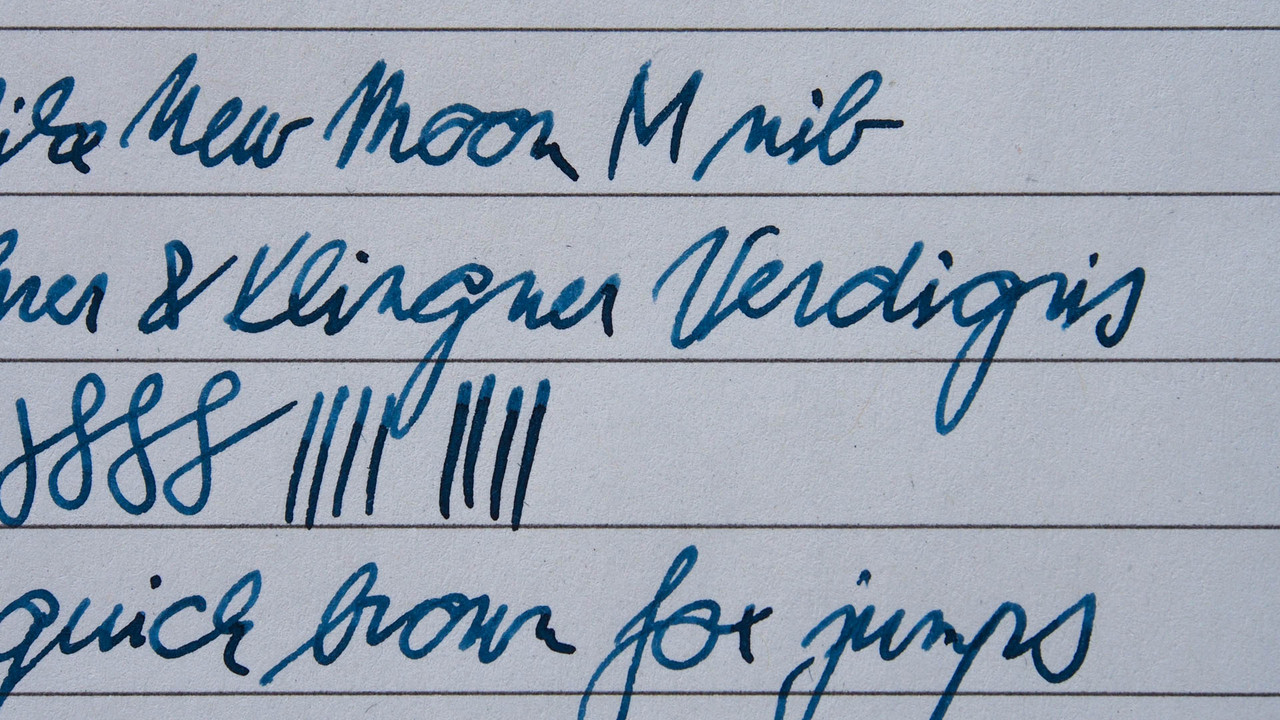 New Moon M nib
& Klingner Verdigris
quick brown fox jumps